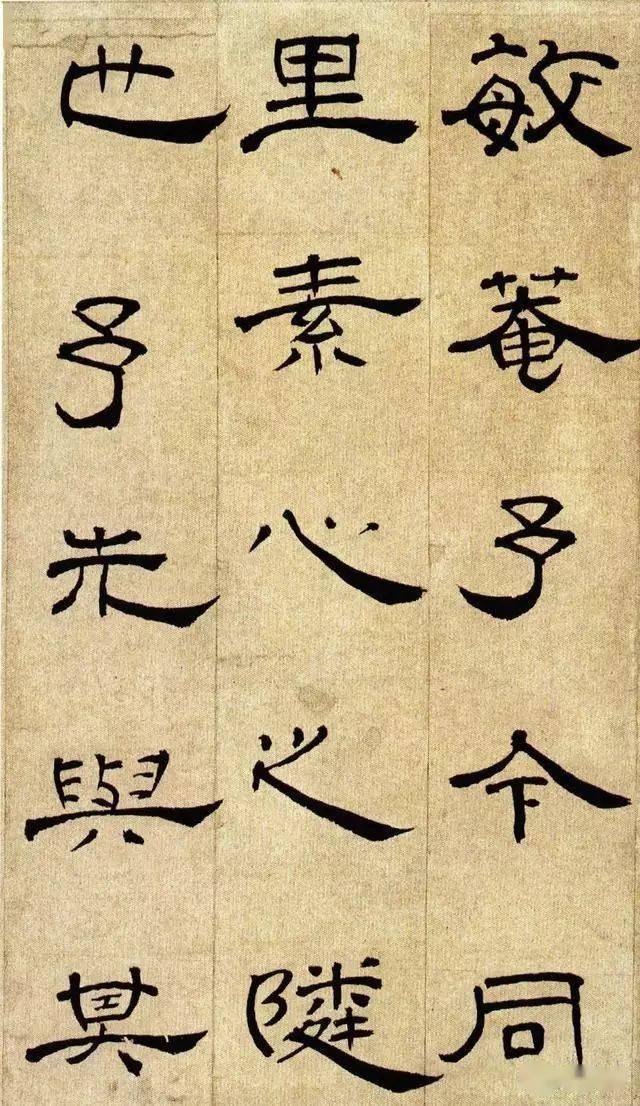 敏菴予今同
里素心之隣
也予先與其